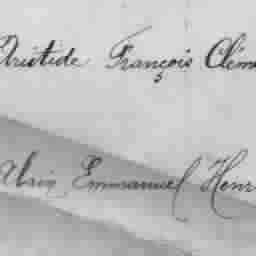 Aristide François Clém
Alain Emmanuel Henr